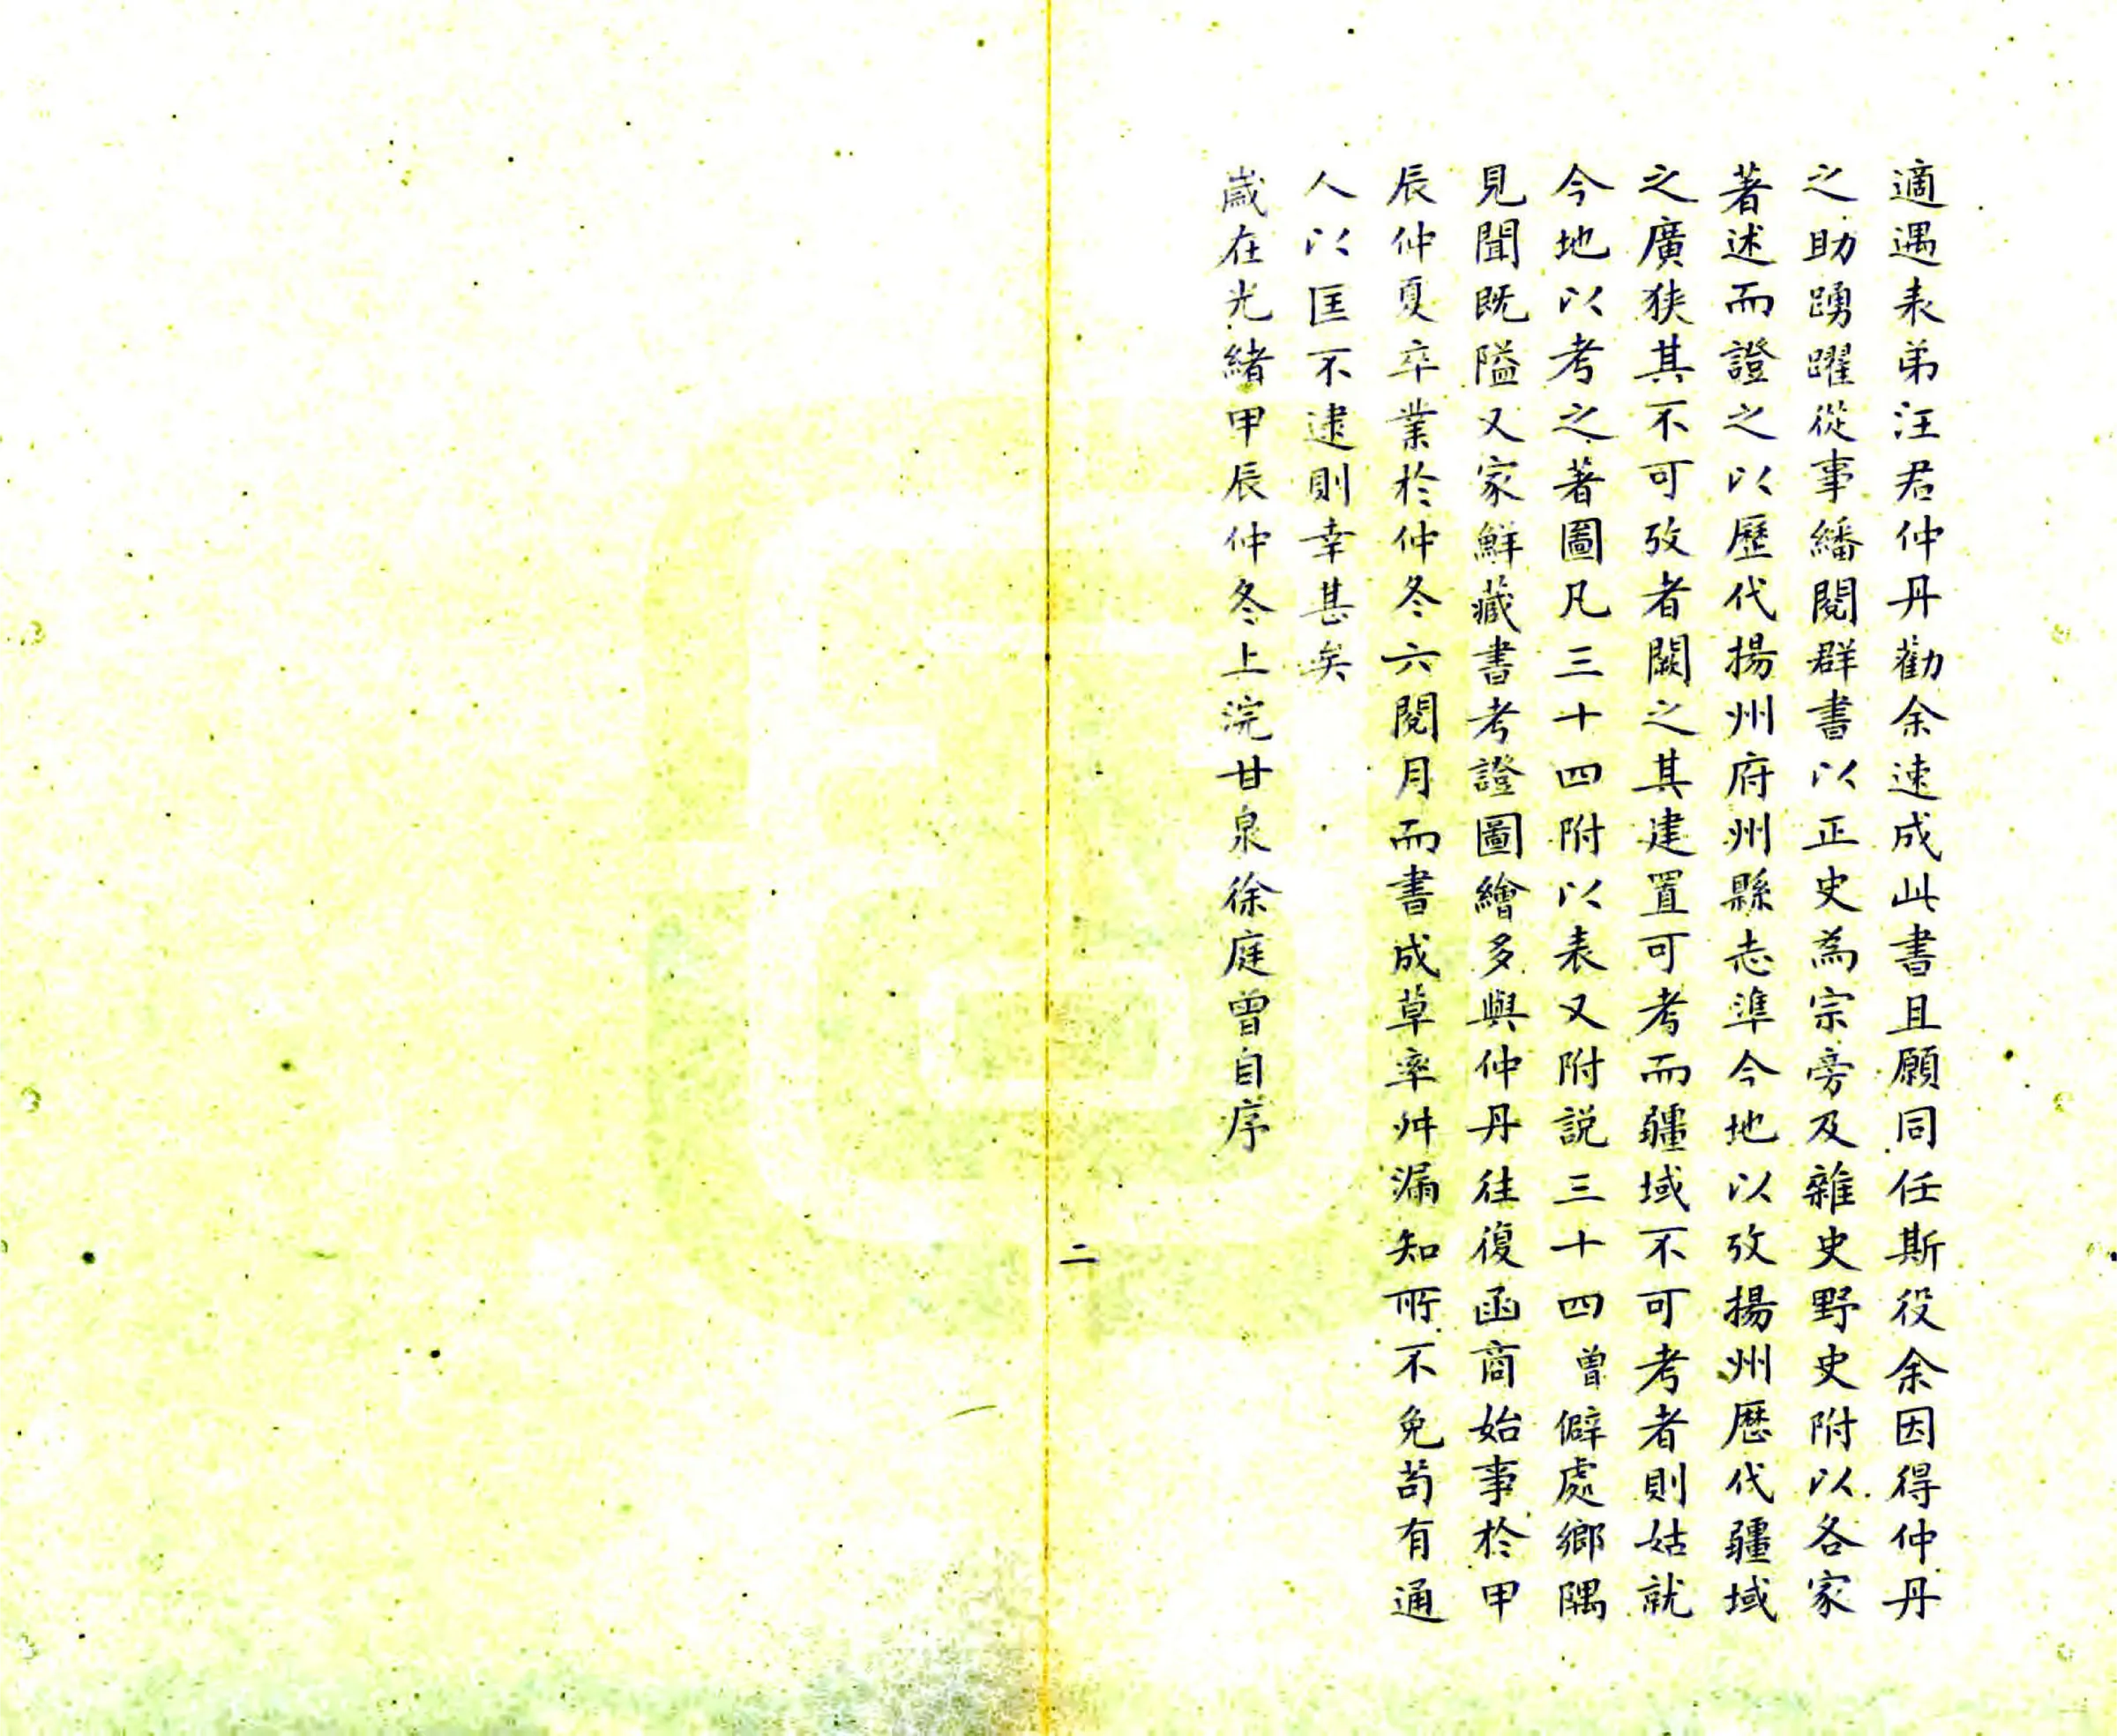 適遇表弟汪君仲丹勸余速成此書且願同任斯役余因得仲丹
之助踴躍從事繙閱群書以正史為宗旁及雜史野史附以各家
著述而證之以歷代揚州府州縣志準今地以攷揚州歷代疆域
之廣狹其不可攷者闕之其建置可考而疆域不可考者則姑就
今地以考之著圖凡三十四附以表又附説三十四曾僻處鄉隅
見聞既隘又家鮮藏書考證圖繪多與仲丹往復函商始事於甲
辰仲夏卒業於仲冬六閱月而書成草率舛漏知所不免苟有通
人以匡不逮則幸甚矣
歲在光緒甲辰仲冬上浣甘泉徐庭曾自序
二